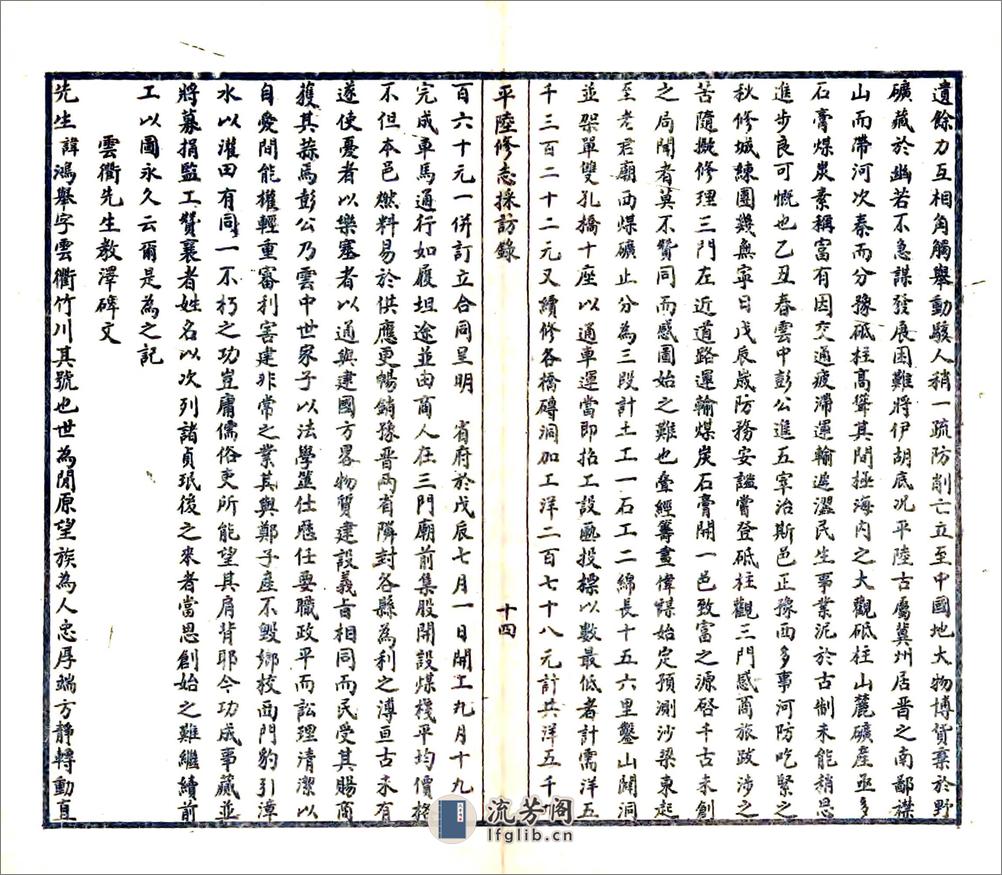 遺餘力互相角觸舉動駭人稍一疏防削亡立至中國地大物博貨棄於野
礦藏於幽若不急謀發展困難將伊胡底况平陸古屬冀州居晉之南鄙襟
山而帶河次秦而分豫砥柱高聳其間極海內之大觀砥柱山麓礦產亟多
石膏煤炭素稱富有因交通疲滯運輸遲澀民生事業泥於古制未能稍思
進步良可慨也乙丑春雲中彭公進五宰治斯邑正豫西多事河防吃緊之
秋修城練團幾無寧日戊辰歲防務安謐嘗登砥柱觀三門感商旅跋涉之
苦隨擬修理三門左近道路運輸煤炭石膏開一邑致富之源啓千古未創
之局聞者莫不贊同而感圖始之難也叠經籌畫偉謀始定預測沙梁東起
至老君廟西煤礦止分為三段計土工一石工二綿長十五六里鑿山開洞
並架單雙孔橋十座以通車運當即招工設匭投標以數最低者計需洋五
千三百二十二元又續修各橋磚洞加工洋二百七十八元計共洋五千
平陸修志採訪錄
十四
百六十元一併訂立合同呈明 省府於戊辰七月一日開工九月十九
完成車馬通行如履坦途並由商人在三門廟前集股開設煤棧平均價格
不但本邑燃料易於供應更暢銷豫晉兩省隣封各縣為利之溥亘古未有
遂使憂者以樂塞者以通與建國方畧物質建設義旨相同而民受其賜商
獲其蘇焉彭公乃雲中世家子以法學筮仕歷任要職政平而訟理清潔以
自愛間能權輕重審利害建非常之業其與鄭子產不毀鄉校西門豹引漳
水以灌田有同一不朽之功豈庸儒俗吏所能望其肩背耶今功成事蕆並
將募捐監工贊襄者姓名以次列諸貞珉後之來者當思創始之難繼續前
工以圖永久云爾是為之記
雲衢先生教澤碑文
先生諱鴻舉字雲衢竹川其號也世為閒原望族為人忠厚端方靜轉動直
流芳阁
lfglib.cn